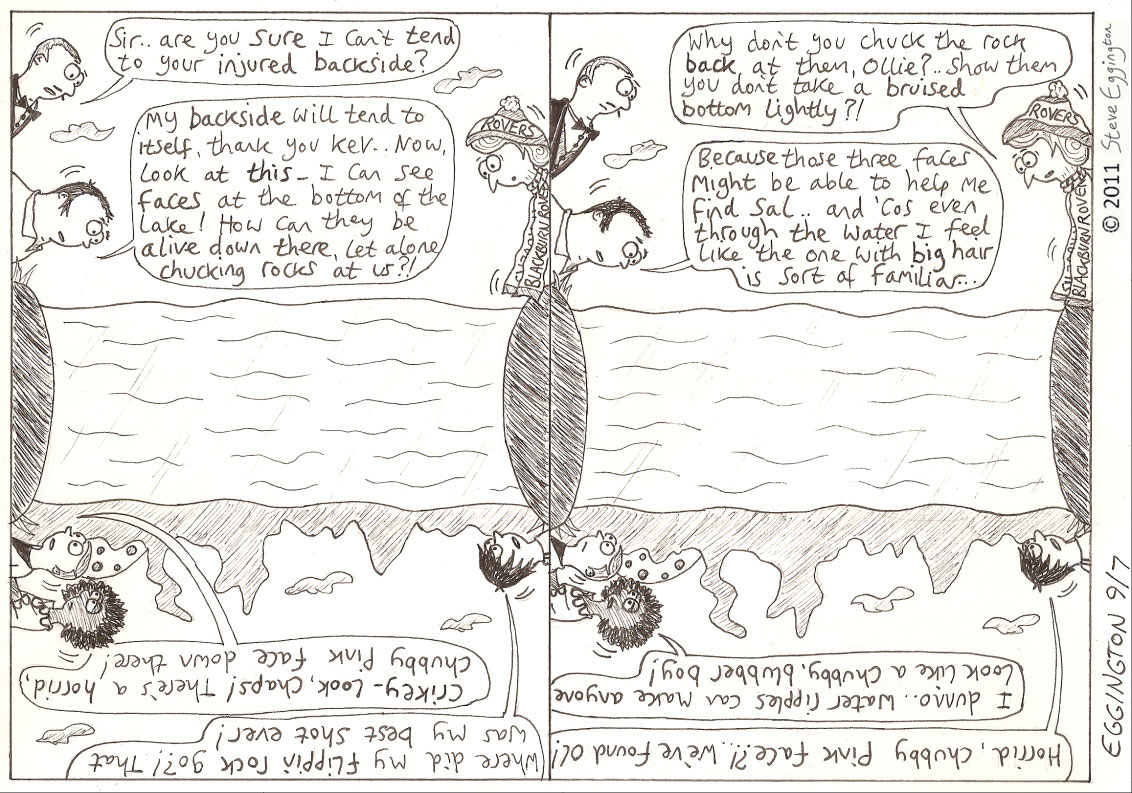 Sir.. are you sure I can't tend
to your injured backside?
My backside will tend to
itself, thank you Kev.. Now,
look at this - I can see
faces at the bottom of the
lake! How can they be
alive down there, let alone
chucking rocks at us?!
ROVERS
BLACKBURN ROVERS
Where did my flippin' rock go?! That
was my best shot ever!
Crikey - Look, Chaps! There's a horrid,
chubby pink face down there!
Why don't you chuck the rock
back at them, Ollie?.. Show them
you don't take a bruised
bottom lightly?!
Because those three faces
might be able to help me
find Sal.. and 'cos even
through the water I feel
like the one with big hair
is sort of familiar...
ROVERS
BLACKBURN ROVERS
Horrid, chubby pink face?!.. We've found Ol!
I dunno.. water ripples can make anyone
look like a chubby, blubber boy!
© 2011 Steve Eggington
EGGINGTON 9/7